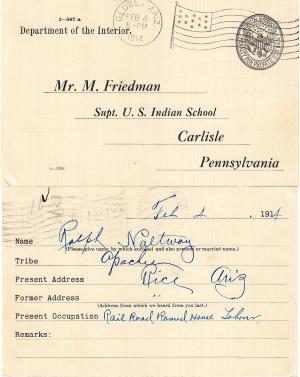 1-567 a
Department of the Interior.
GLOBE, ARIZ
FEB 4
6-PM
1914
Mr. M. Friedman
Supt. U. S. Indian School
Carlisle
Pennsylvania
Feb 4, 1914
Name Ralph Naltway
(Please give name by which enrolled and also present or married name.)
Tribe Apache
Present Address Rice Ariz
Former Address
(Address from which we heard from you last.)
Present Occupation Rail Road Round House Labour
Remarks: